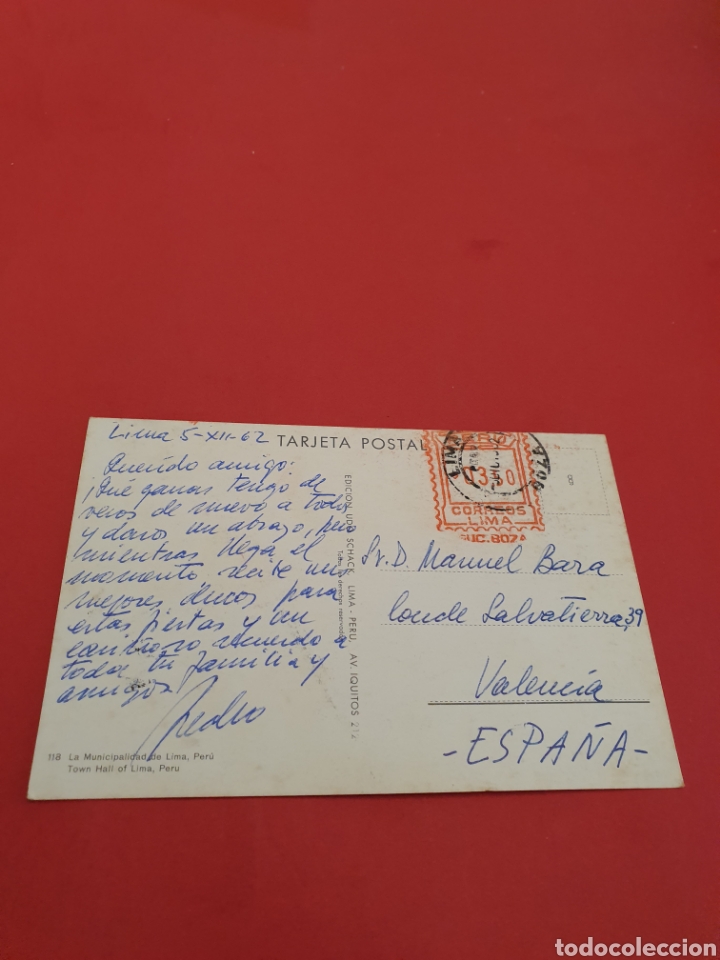 Lima 5-XII-62
TARJETA POSTAL
Querido amigo:
¡Qué ganas tengo de
veros de nuevo a todos
y daros un abrazo, pero
mientras llega el
momento, recibe mis
mejores deseos para
estas fiestas y un
cariñoso recuerdo a
toda tu familia y
amigos
Pedro
118 La Municipalidad de Lima, Perú
Town Hall of Lima, Peru
EDICION UDO SCHACK, LIMA - PERU, AV. IQUITOS 212
Todos los derechos reservados
LIMA
CORREOS
LIMA
SUC. 807A
Sr. D. Manuel Bara
Conde Salvatierra, 39
Valencia
-ESPAÑA-
todocoleccion